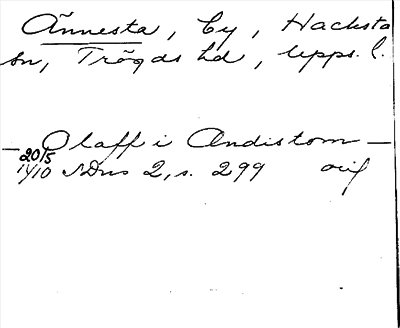 Ännesta, by, Hacksta
sn, Trögds hd, Upps. l.
— Olaff i Andistom —
20/5
1410 SDns 2, s. 299 orig